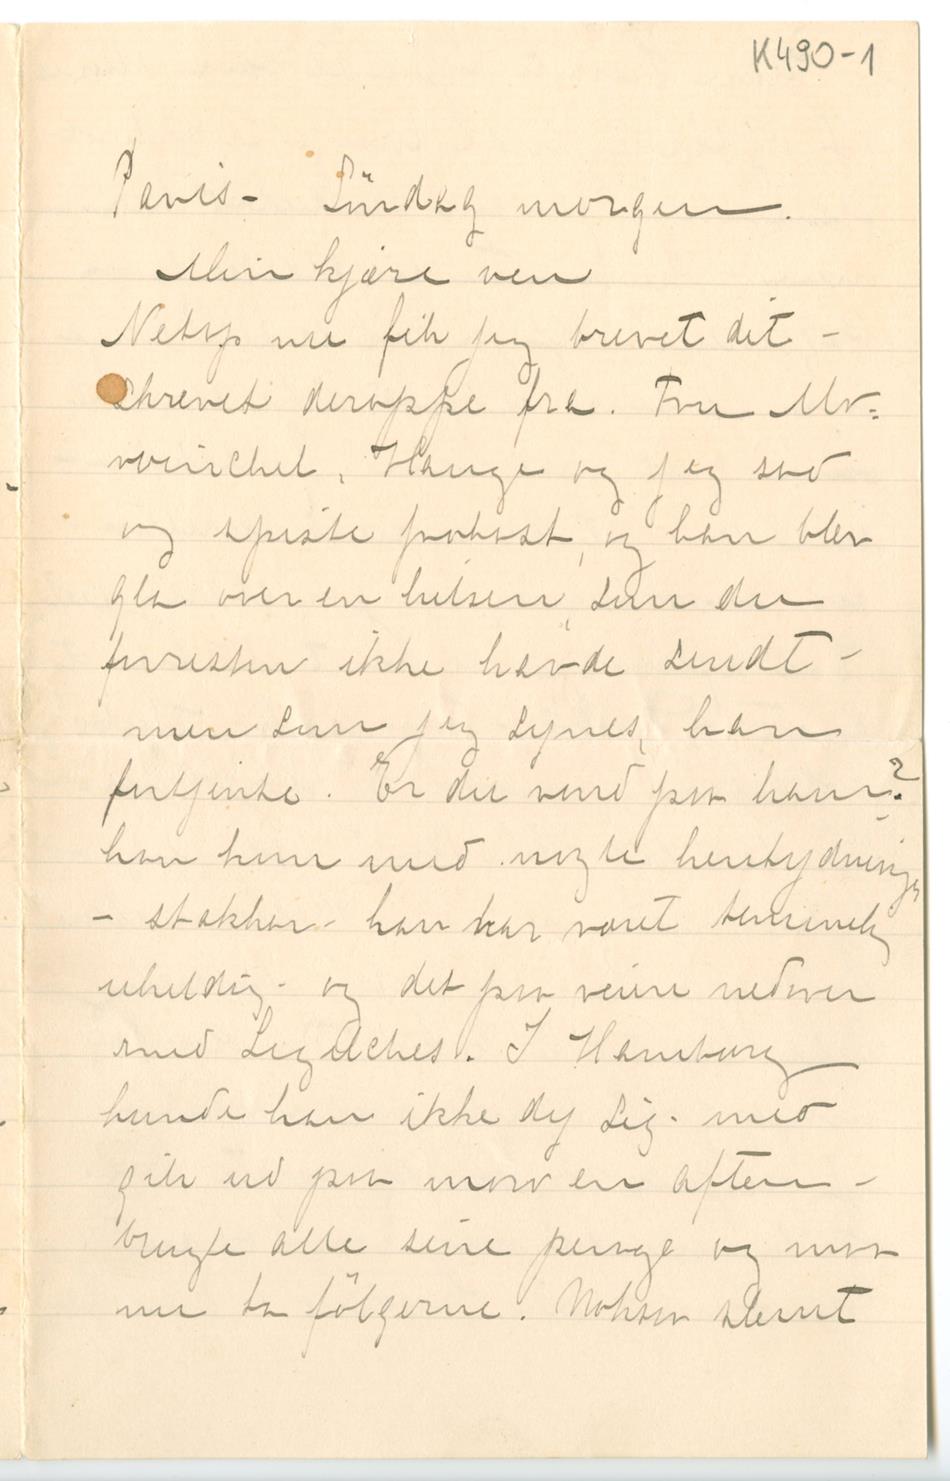 K490-1
Paris - Söndag morgen.
Min kjære ven
Netop nu fik jeg brevet dit -
skrevet deroppe fra. Fru Mo-
winchel, Hauge og jeg sad
og spiste frokost, og han blev
gla over en hilsen, som du
forresten ikke havde sendt -
men som jeg synes, han
fortjente. Er du vred paa ham?
han kom med nogle hentydninger
- stakkar - han har været temmelig
uheldig - og det paa veien nedover
med Legaches. I Hamburg
kunde han ikke dy sig - med
gik ud paa moro en aften -
brugte alle sine penge og maa
nu ta fölgerne. Noksaa slemt